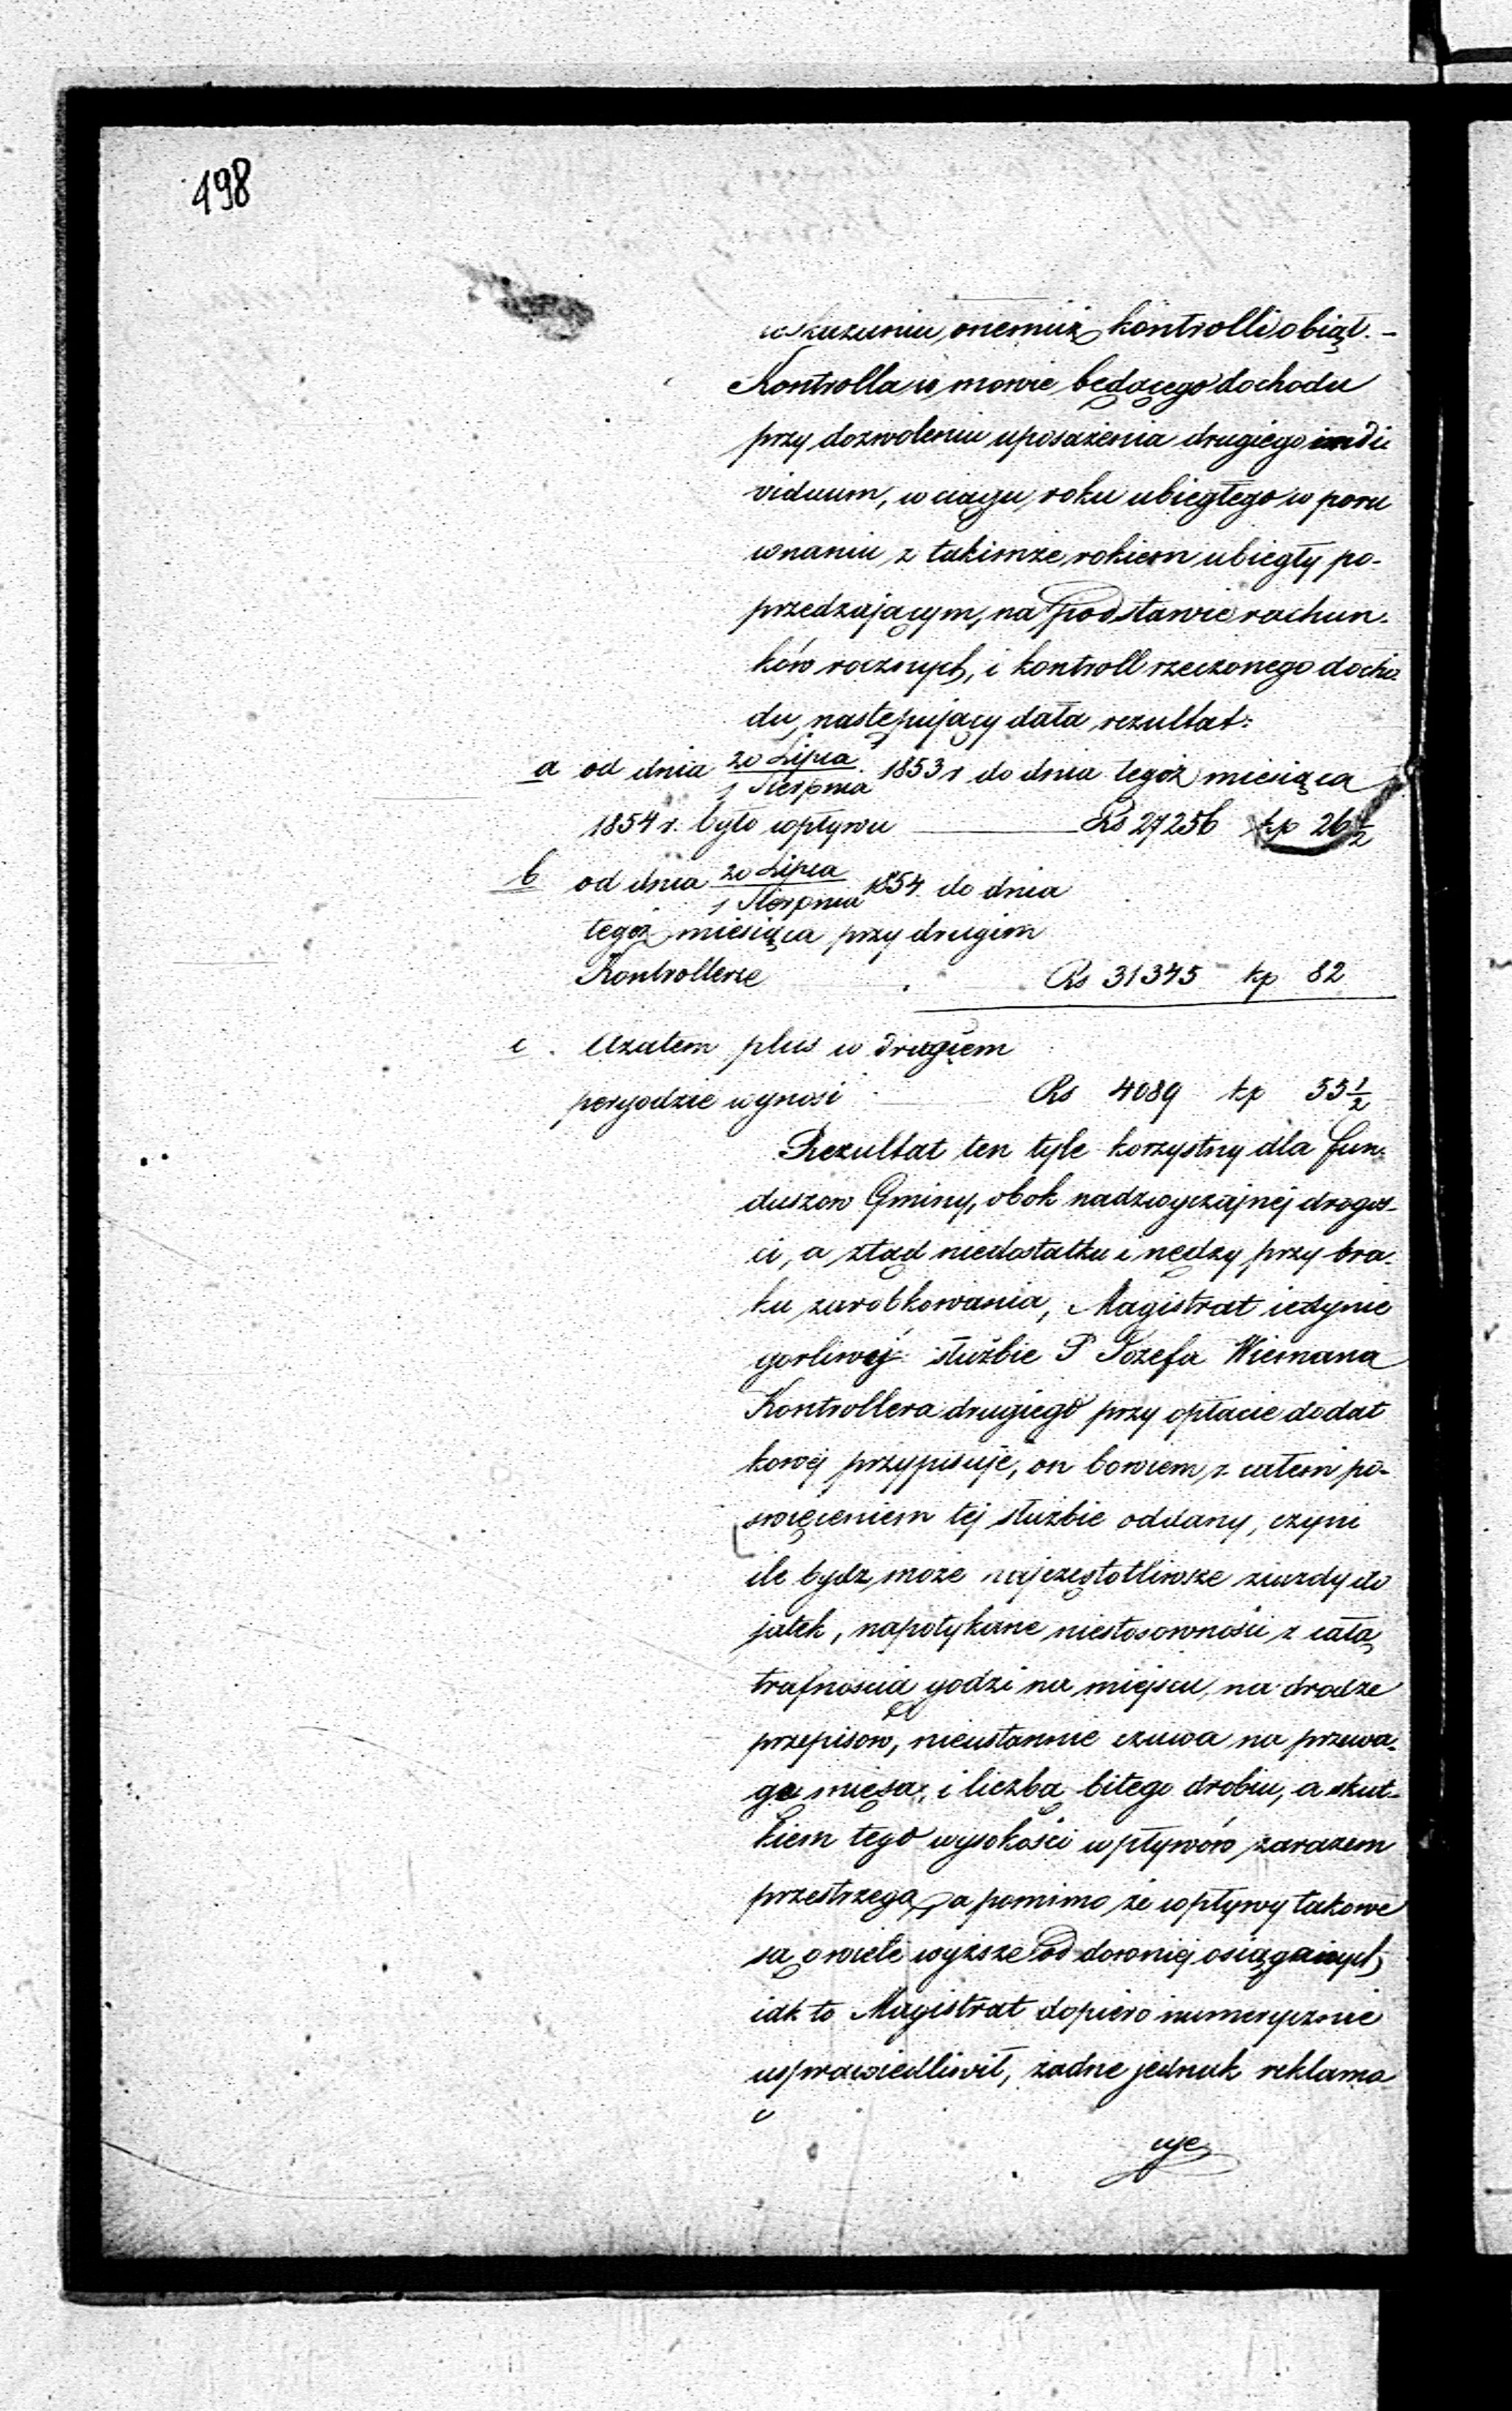 198
wskazaniu onemuż kontrolli obiął. –
Kontrolla w mowie będącego dochodu
przy dozwoleniu uposażenia drugiego indi
viduum, w ciągu roku ubiegłego w poru
wnaniu z takimże rokiem ubiegły po-
przedzającym, na podstawie rachun-
ków rocznych, i kontroll rzeczonego docho
du, następujący dała rezultat:
a od dnia 20 Lipca / 1 Sierpnia 1853 r do dnia tegoż miesiąca
1854 r. było wpływu Rs 27256 kp 26 1/2
b od dnia 20 Lipca / 1 Sierpnia 1854 do dnia
tegoż miesiąca przy drugim
Kontrollerze Rs 31345 kp 82
c. Azatem plus w drugiem
peryodzie wynosi Rs 4089 kp 55 1/2
Rezultat ten tyle korzystny dla fun-
duszow Gminy, obok nadzwyczajnej drogoś-
ci, a ztąd niedostatku i nędzy przy bra-
ku zarobkowania, Magistrat iedynie
gorliwej służbie P Józefa Wiemana
Kontrollera drugiego przy opłacie dodat
kowej przypisuje, on bowiem z całem po-
święceniem tej służbie oddany, czyni
ile bydz może najczęstotliwsze ziazdy do
jatek, napotykane niestosowności z całą
trafnością godzi na miejscu, na drodze
przepisow, nieustannie czuwa na przewa-
gę mięsa, i liczbą bitego drobiu, a skut-
kiem tego wysokości wpływów zarazem
przestrzega, a pomimo że wpływy takowe
są owiele wyższe od dawniej osiąganych,
iak to Magistrat dopiero numerycznie
usprawiedliwił, żadne jednak reklama
cye